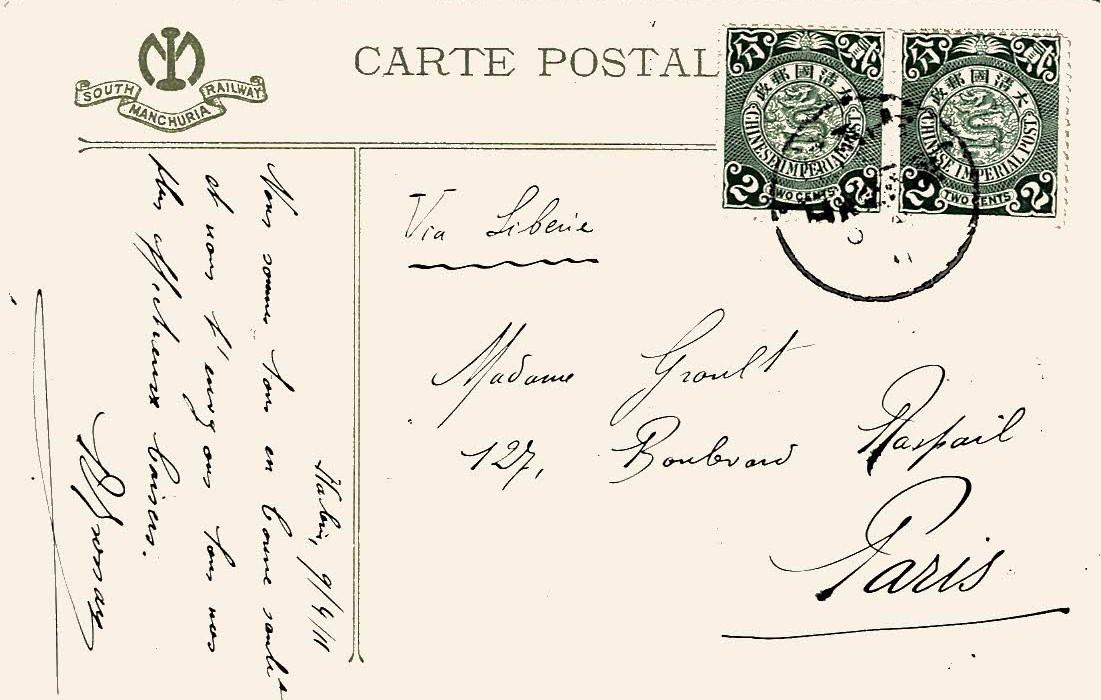 SOUTH MANCHURIA RAILWAY
CARTE POSTAL
大清國郵政
貳分
CHINESE IMPERIAL POST
2 2
TWO CENTS
大清國郵政
貳分
CHINESE IMPERIAL POST
2 2
TWO CENTS
Via Siberie
Madame Groult
127, Boulevard Raspail
Paris
Harbin, 9/4/11
Nous sommes tous en bonne santé
et nous t'envoyons tous nos
plus affectueux baisers.